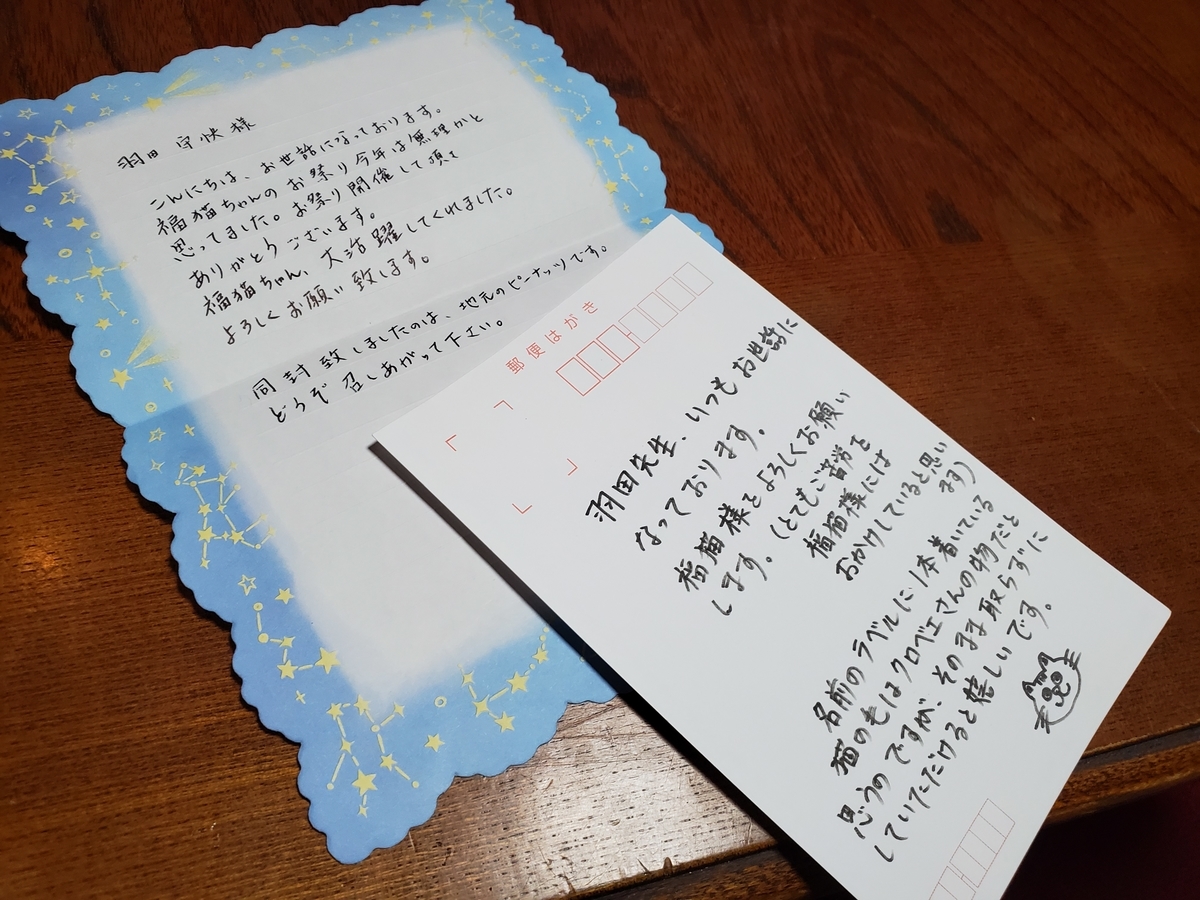 羽田 守快 様
こんにちは、お世話になっております。
福猫ちゃんのお祭り今年は無理かと
思ってました。お祭り開催して頂き
ありがとうございます。
福猫ちゃん、大活躍してくれました。
よろしくお願い致します。
同封致しましたのは、地元のピーナッツです。
どうぞ召しあがって下さい。
郵便はがき
羽田先生、いつもお世話に
なっております。
福猫様をよろしくお願い
します。(とてもご苦労を
福猫様には
おかけしていると思い
ます)
名前のラベルに1本着いている
猫の毛はクロベエさんの物だと
思うのですが、そのまま取らずに
していただけると嬉しいです。